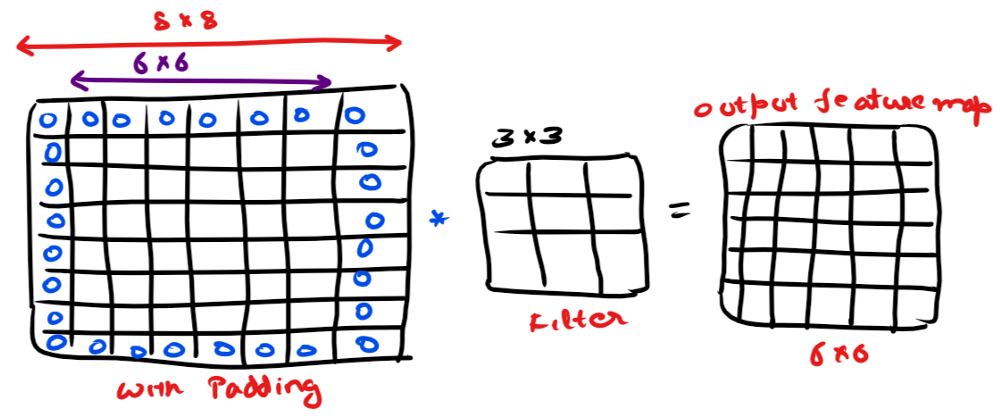 8 × 8
6×6
0 0 0 0 0 0 0 0
0 0
0 0
0 0
0 0
0 0
0 0
0 0 0 0 0 0 0 0
with Padding
*
3×3
Filter
=
output feature map
6×6